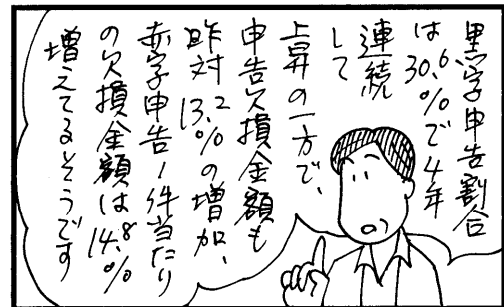 黒字申告割合
は30.6%で4年
連続
して
上昇の一方で、
申告欠損金額も
昨対13.2%の増加、
赤字申告1件当たり
の欠損金額は14.8%
増えてるそうです